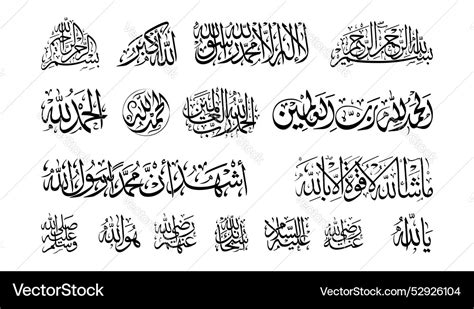 بسم الله الرحمن الرحيم الله أكبر لا إله إلا الله محمد رسول الله بسم الله الرحمن الرحيم
الحمد لله الحمد لله الحمد لله رب العالمين الحمد لله رب العالمين
أشهد أن محمد رسول الله ما شاء الله لا قوة إلا بالله
صلى الله عليه وسلم هو الله رضي الله عنهم سبحان الله عليه السلام رضي الله عنه يا الله
VectorStock VectorStock.com/52926104